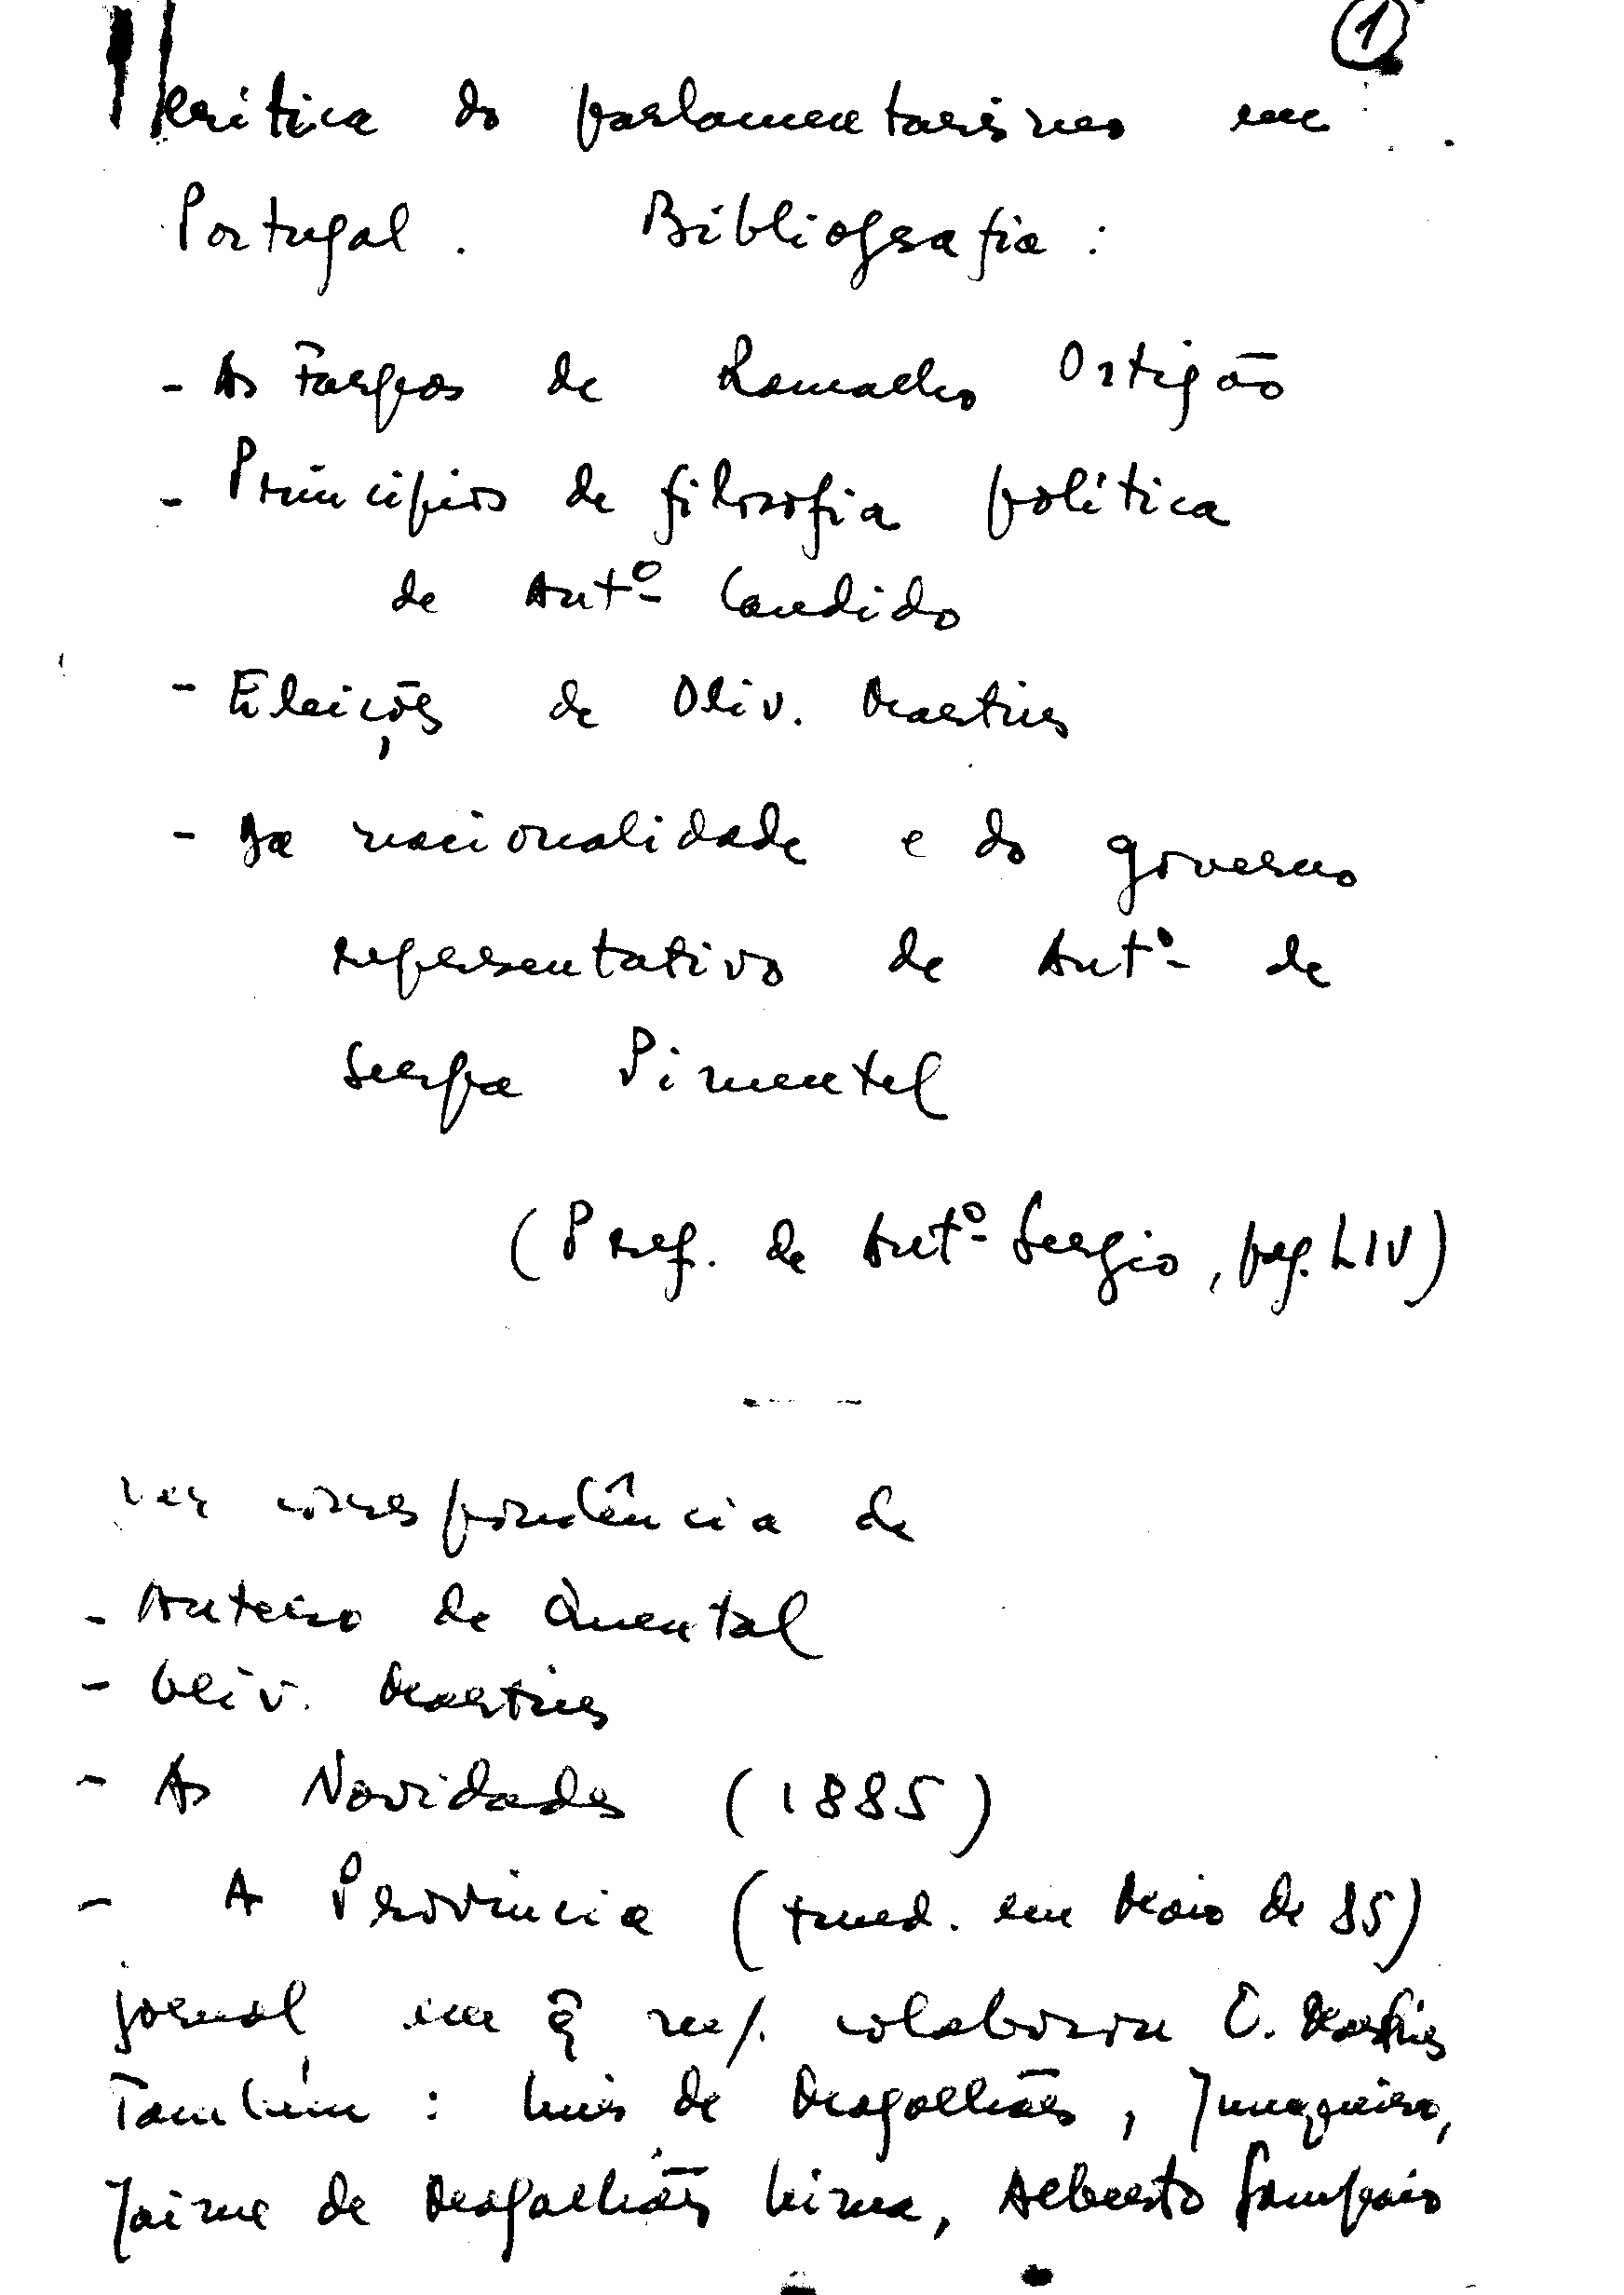 ①
Crítica do parlamentarismo em
Portugal. Bibliografia:
- As Farpas de Ramalho Ortigão
- Princípios de filosofia política
de Antº Candido
- Eleições de Oliv. Martins
- Da nacionalidade e do governo
representativo de Antº de
Serpa Pimentel
(Pref. de Antº Sergio, pag. LIV)
Ver correspondência de
- Antero de Quental
- Oliv. Martins
- As Novidades (1885)
- A Província (fund. em Maio de 85)
jornal em q̃ m/. colaborou O. Martins
Também: Luis de Magalhães, Junqueiro,
Jaime de Magalhães Lima, Alberto Sampaio